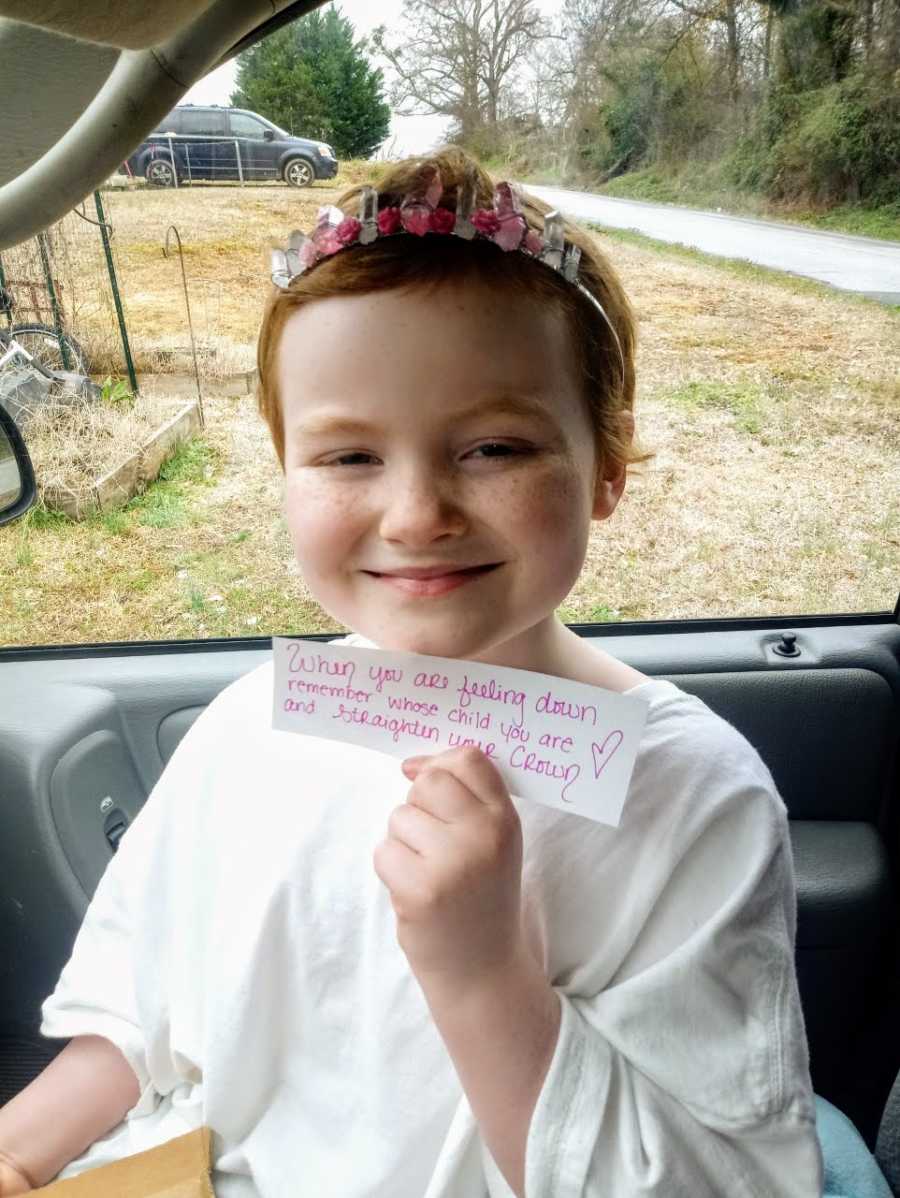 When you are feeling down
remember whose child you are
and straighten your Crown